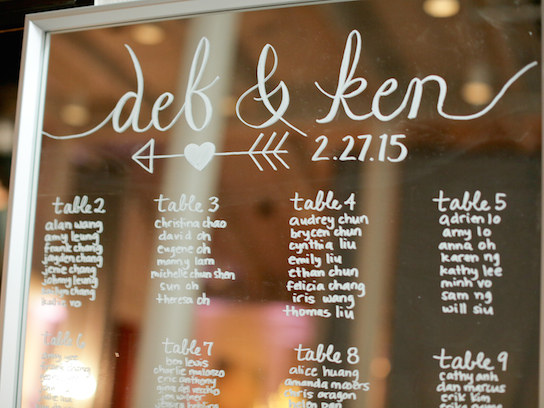 deb & ken
2.27.15
table 2
alan wang
amy leung
frank chang
jayden chang
jenie chang
johnny leung
kaitlyn chang
kate vo
table 3
christina chao
david oh
eugene oh
manny lam
michelle chun shen
sun oh
theresa oh
table 4
audrey chun
brycen chun
cynthia liu
emily liu
ethan chun
felicia chang
iris wang
thomas liu
table 5
adrien lo
amy lo
anna oh
karen ng
kathy lee
minh vo
sam ng
will siu
table 6
table 7
ben lewis
charlie malonzo
eric anthony
table 8
alice huang
amanda moers
chris aragon
table 9
cathy anh
dan marcus
erik kim